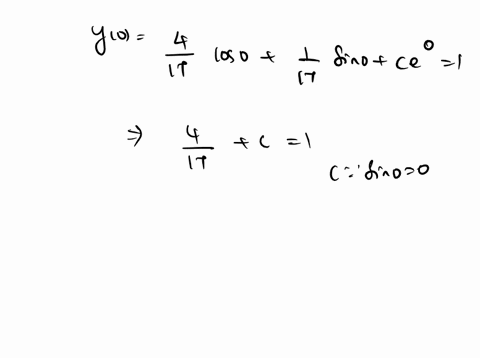 y(0) = 4/17 cos 0 + 1/17 sin 0 + ce^0 = 1
⇒ 4/17 + c = 1
(∵ sin 0 = 0